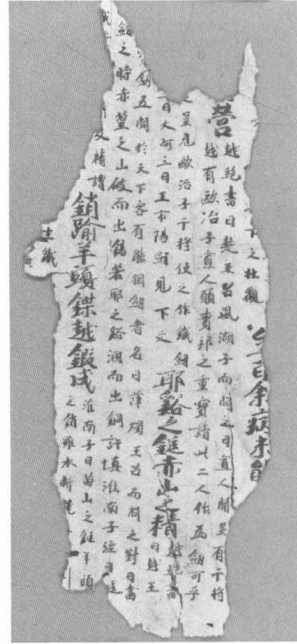 下之壯觀 公子曰余病未能
營 越絕書曰楚王召風湖子而問之曰寡人聞吳有干將
越有歐冶子寡人願賷邦之重寶請此二人作為劍可乎
之吳見歐冶子干將使之作鐵劍
一曰大阿三曰工市陽湖見下文 耶谿之鋌赤山之精 越絕書
曰越王
劍五聞於天下客有能相劍者名曰薛燭王召而問之對曰當
劍之時赤堇之山破而出錫若耶之谿涸而出銅許慎淮南子注曰鋌
精謂 銷踰羊頭鏷越鍛成 淮南子曰苗山之鋌羊頭
生鐵
之銷雖水斷龍